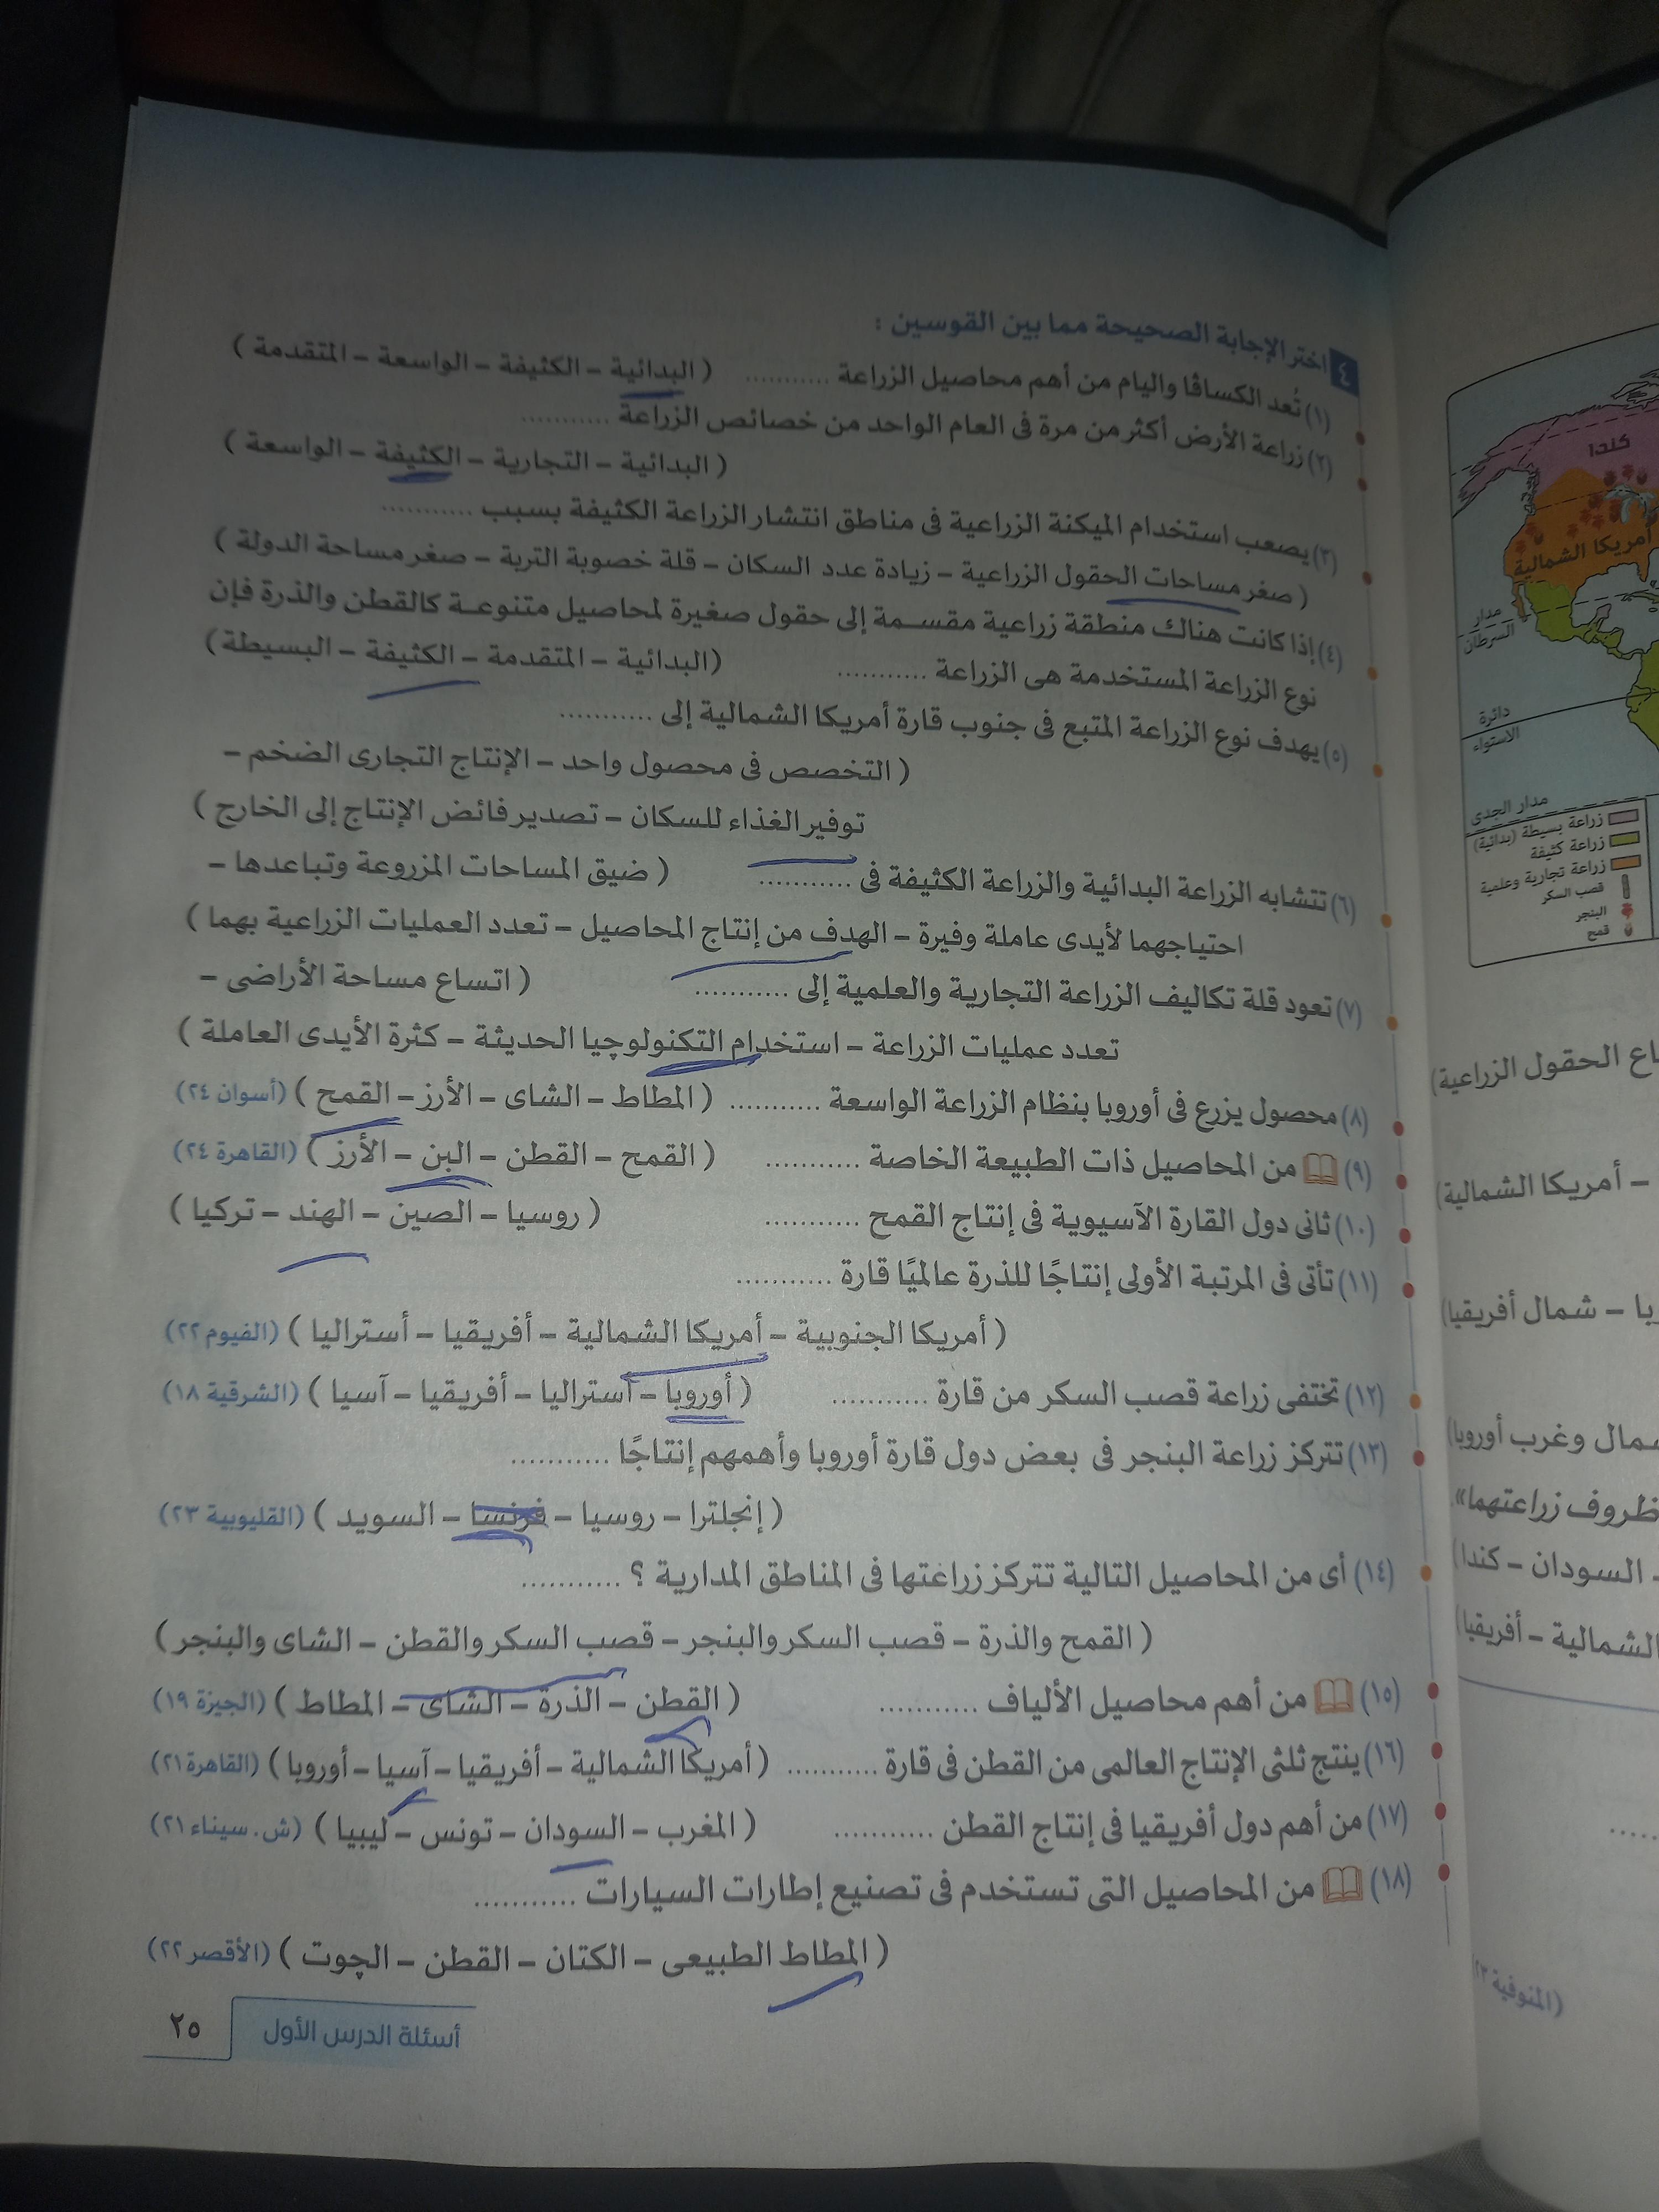 ٤ اختر الإجابة الصحيحة مما بين القوسين :
(١) تُعد الكسافا واليام من أهم محاصيل الزراعة ........... ( البدائية – الكثيفة – الواسعة – المتقدمة )
(٢) زراعة الأرض أكثر من مرة فى العام الواحد من خصائص الزراعة ...........
( البدائية – التجارية – الكثيفة – الواسعة )
(٣) يصعب استخدام الميكنة الزراعية فى مناطق انتشار الزراعة الكثيفة بسبب ...........
( صغر مساحات الحقول الزراعية – زيادة عدد السكان – قلة خصوبة التربة – صغر مساحة الدولة )
(٤) إذا كانت هناك منطقة زراعية مقسمة إلى حقول صغيرة لمحاصيل متنوعة كالقطن والذرة فإن
نوع الزراعة المستخدمة هى الزراعة ........... (البدائية – المتقدمة – الكثيفة – البسيطة)
(٥) يهدف نوع الزراعة المتبع فى جنوب قارة أمريكا الشمالية إلى ...........
( التخصص فى محصول واحد – الإنتاج التجارى الضخم –
توفير الغذاء للسكان – تصدير فائض الإنتاج إلى الخارج )
(٦) تتشابه الزراعة البدائية والزراعة الكثيفة فى ........... ( ضيق المساحات المزروعة وتباعدها –
احتياجهما لأيدى عاملة وفيرة – الهدف من إنتاج المحاصيل – تعدد العمليات الزراعية بهما )
(٧) تعود قلة تكاليف الزراعة التجارية والعلمية إلى ........... ( اتساع مساحة الأراضى –
تعدد عمليات الزراعة – استخدام التكنولوجيا الحديثة – كثرة الأيدى العاملة )
(٨) محصول يزرع فى أوروبا بنظام الزراعة الواسعة ........... ( المطاط – الشاى – الأرز – القمح ) (أسوان ٢٤)
(٩) من المحاصيل ذات الطبيعة الخاصة ........... ( القمح – القطن – البن – الأرز ) (القاهرة ٢٤)
(١٠) ثانى دول القارة الآسيوية فى إنتاج القمح ........... ( روسيا – الصين – الهند – تركيا )
(١١) تأتى فى المرتبة الأولى إنتاجًا للذرة عالميًا قارة ...........
( أمريكا الجنوبية – أمريكا الشمالية – أفريقيا – أستراليا ) (الفيوم ٢٢)
(١٢) تختفى زراعة قصب السكر من قارة ........... ( أوروبا – أستراليا – أفريقيا – آسيا ) (الشرقية ١٨)
(١٣) تتركز زراعة البنجر فى بعض دول قارة أوروبا وأهمهم إنتاجًا ...........
( إنجلترا – روسيا – فرنسا – السويد ) (القليوبية ٢٣)
(١٤) أى من المحاصيل التالية تتركز زراعتها فى المناطق المدارية ؟ ...........
( القمح والذرة – قصب السكر والبنجر – قصب السكر والقطن – الشاى والبنجر )
(١٥) من أهم محاصيل الألياف ........... ( القطن – الذرة – الشاى – المطاط ) (الجيزة ١٩)
(١٦) ينتج ثلثى الإنتاج العالمى من القطن فى قارة ........... ( أمريكا الشمالية – أفريقيا – آسيا – أوروبا ) (القاهرة ٢١)
(١٧) من أهم دول أفريقيا فى إنتاج القطن ........... ( المغرب – السودان – تونس – ليبيا ) (ش. سيناء ٢١)
(١٨) من المحاصيل التى تستخدم فى تصنيع إطارات السيارات ...........
( المطاط الطبيعى – الكتان – القطن – الچوت ) (الأقصر ٢٢)
أسئلة الدرس الأول
٢٥
كندا
أمريكا الشمالية
مدار
السرطان
دائرة
الاستواء
مدار الجدى
زراعة بسيطة (بدائية)
زراعة كثيفة
زراعة تجارية وعلمية
قصب السكر
البنجر
قمح
الحقول الزراعية)
– أمريكا الشمالية)
– شمال أفريقيا)
وغرب أوروبا)
ظروف زراعتهما»
– السودان – كندا)
الشمالية – أفريقيا)